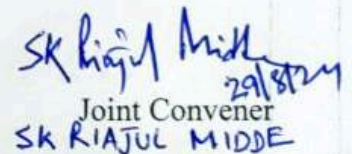 SK Riajul Midde
29/8/24
Joint Convener
SK RIAJUL MIDDE